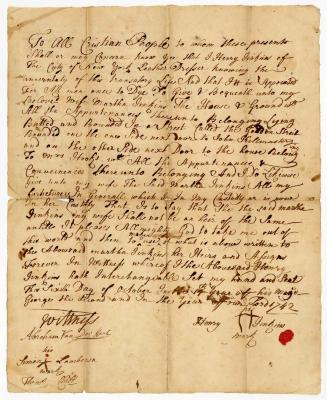 To All Cristian People to whom these presents
Shall or may Concern know yea that I Henry Jenkins of
The City of New York Leather Dresser knowing the
uncertaintty of this Transatory Life And that It is Appointed
For All men once to Dye Do Give & Bequeath unto my
Beloved Wife Martha Jenkins The House & Ground with
All the Appurtenances Thereunto Belonging Lying
Butted and bounded in a Street Called the Street
Bounded on the one Side next Door to John
and on the other Side next Door to the house belonging
To Mrs with All the Appurtenances &
Conveniences there unto Belonging And I do Likewise
Give unto my Wife the Said Martha Jenkins All my
in Generall which is in my Custody or is your
In her Custity that Is to Say that She the Said martha
Jenkins my wife Shall not be an heir of the Same
untill it pleases Allmighty God to take me out of
this world and then to use of what is above written to
the Abovesaid martha Jenkins her Heirs and Assigns
Forever In Wittness whereof I the Abovesaid Henry
Jenkins Hath Interchangeable Set my hand and Seal
this Sixth Day of October In the year of his maj
George the Second and In the Year of our Lord 1742
Wittness
Abraham Van
his
Henry Jenkins
Simon Lamberson
mark
mark
Thomas